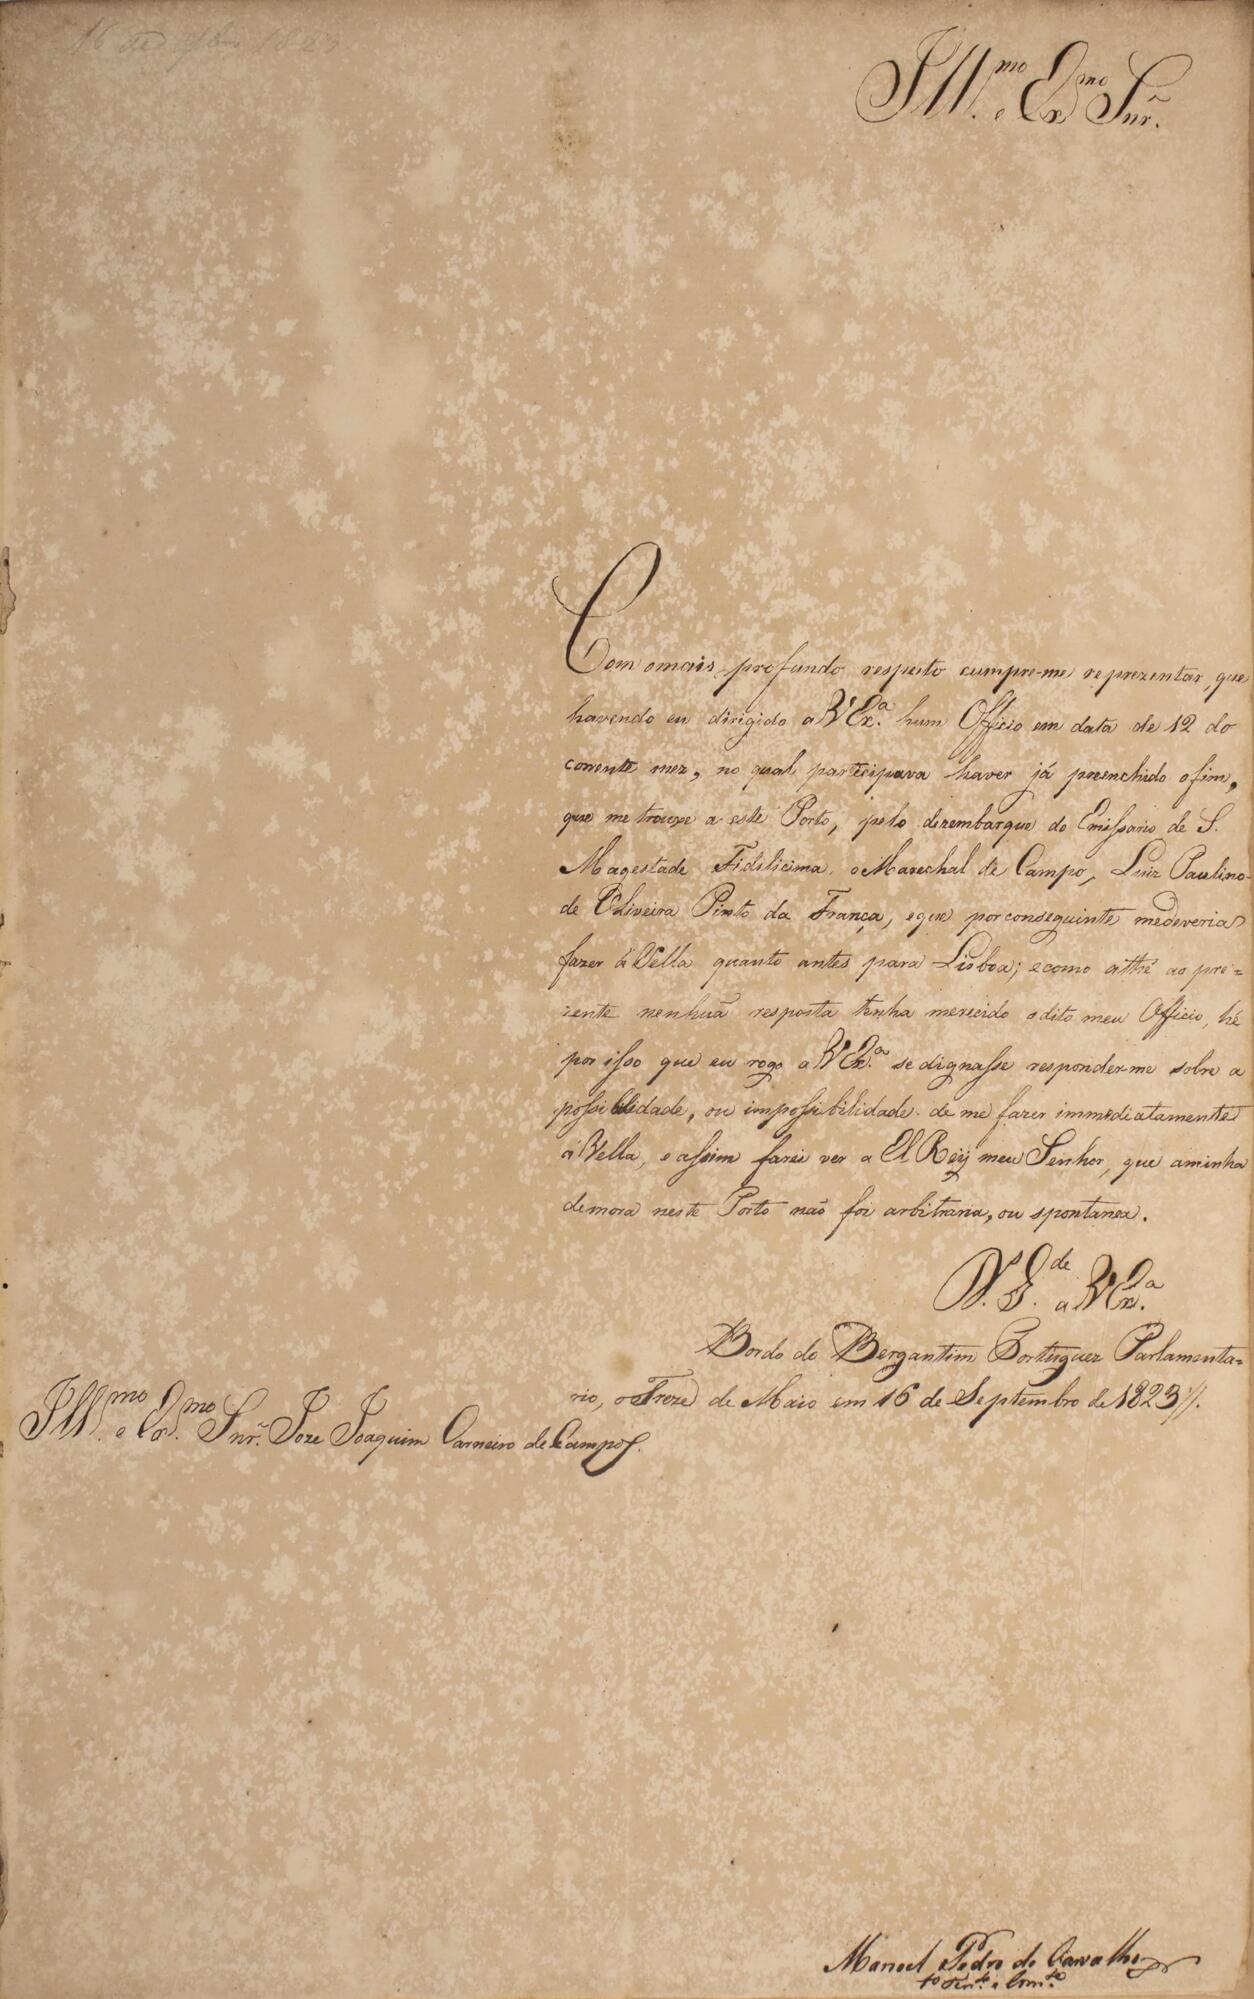 16 de 7bro 1823
Ill.mo e Ex.mo Snr.
Com omais profundo respeito cumpre-me reprezentar, que
havendo eu dirigido a V.Ex.a hum Officio em data de 12 do
corrente mez, no qual participava haver já preenchido ofim,
que me trouxe a este Porto, pelo dezembarque do Emissario de S.
Magestade Fidelicima, o Marechal de Campo, Luiz Paulino
de Oliveira Pinto da França, eque porconseguinte medeveria
fazer á Vella quanto antes para Lisboa; ecomo athé ao pre=
zente nenhuã resposta tenha merecido odito meu Officio, hé
por isso que eu rogo a V.Ex.a se dignasse responder-me sobre a
possibilidade, ou impossibilidade de me fazer immediatamente
á Vella, e assim farei ver a El Rey meu Senhor, que aminha
demora neste Porto não foi arbitraria, ou spontanea.
D. G.de a V.Ex.a
Bordo do Bergantim Portuguez Parlamenta=
rio, o Treze de Maio em 16 de Septembro de 1823//.
Ill.mo e Ex.mo Snr. Joze Joaquim Carneiro de Campos.
Manoel Pedro de Carvalho
1o Ten.te e Com.te